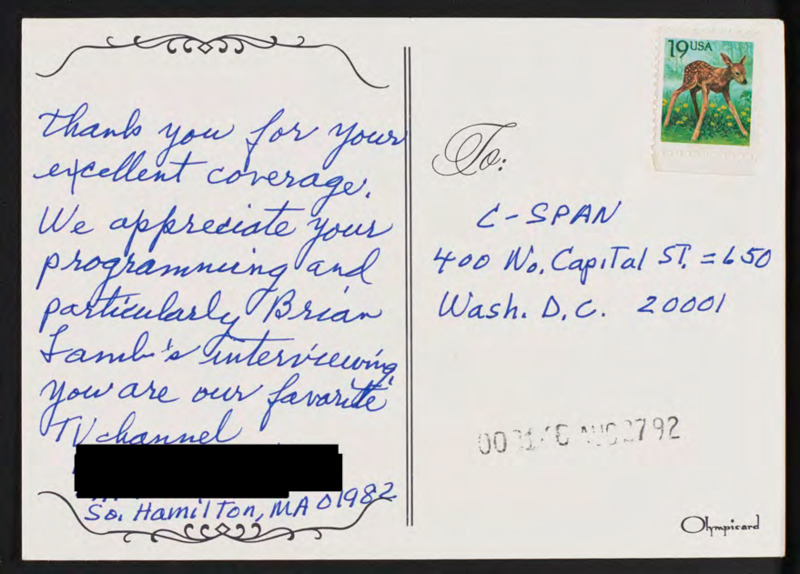 Thank you for your
excellent coverage.
We appreciate your
programming and
particularly Brian
Lamb's interviewing
you are our favorite
TV channel
So. Hamilton, MA 01982
19 USA
To:
C-SPAN
400 No. Capital ST. = 650
Wash. D.C. 20001
AUG 27 92
Olympicard